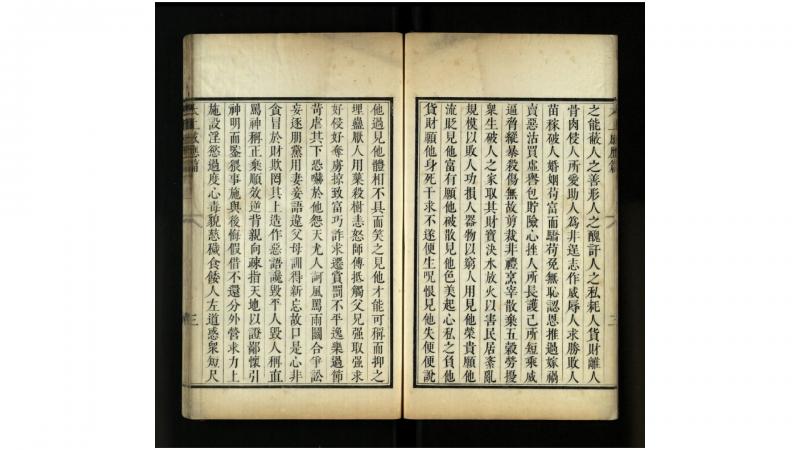 之能蔽人之善形人之醜訐人之私耗人貨財離人
骨肉侵人所愛助人為非逞志作威辱人求勝敗人
苗稼破人婚姻苟富而驕苟免無恥認恩推過嫁禍
賣惡沽買虛譽包貯險心挫人所長護己所短乘威
逼脅縱暴殺傷無故剪裁非禮烹宰散棄五穀勞擾
衆生破人之家取其財寶決水放火以害民居紊亂
規模以敗人功損人器物以窮人用見他榮貴願他
流貶見他富有願他破散見他色美起心私之負他
貨財願他身死干求不遂便生呪恨見他失便便說
他過見他體相不具而笑之見他才能可稱而抑之
埋蠱厭人用藥殺樹恚怒師傅抵觸父兄強取強求
好侵好奪虜掠致富巧詐求遷賞罰不平逸樂過節
苛虐其下恐嚇於他怨天尤人訶風罵雨鬬合爭訟
妄逐朋黨用妻妾語違父母訓得新忘故口是心非
貪冒於財欺罔其上造作惡語讒毀平人毀人稱直
罵神稱正棄順效逆背親向疎指天地以證鄙懷引
神明而鑒猥事施與後悔假借不還分外營求力上
施設淫慾過度心毒貌慈穢食餧人左道惑衆短尺
三